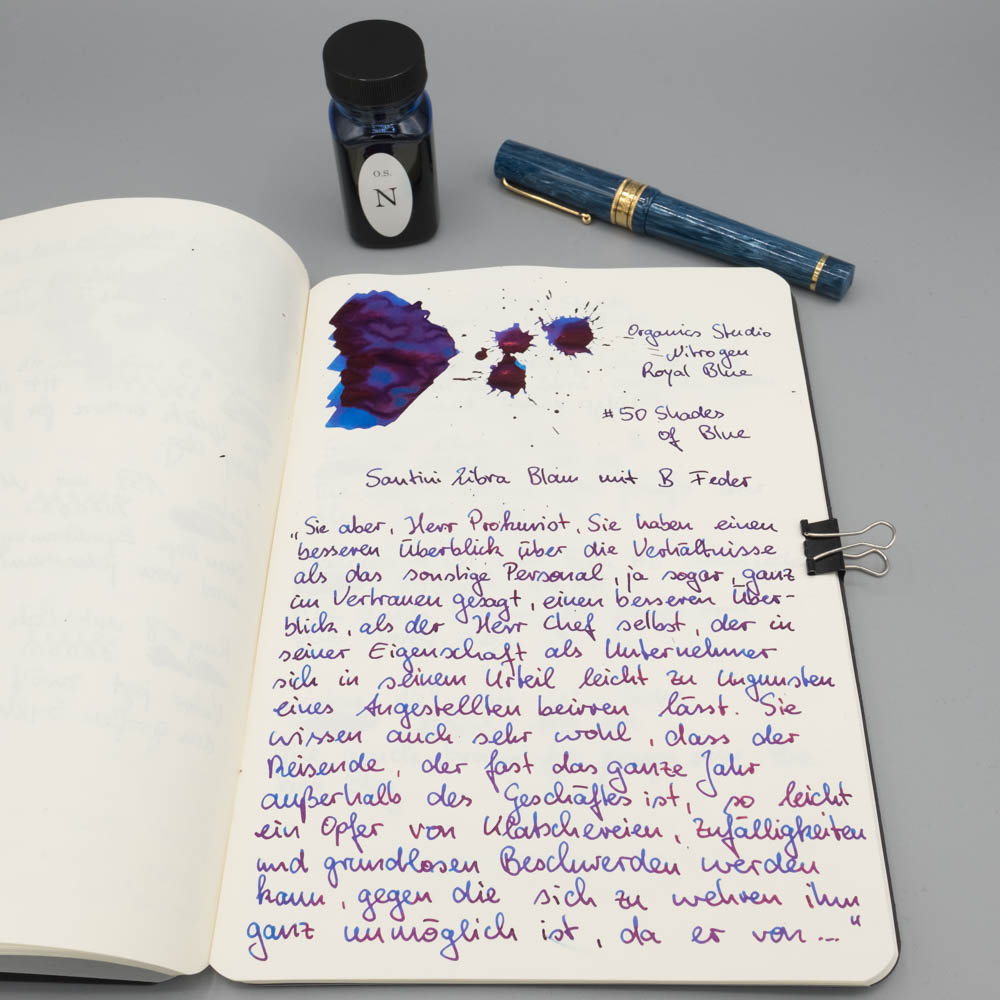 O.S.
N
Organics Studio
- Nitrogen
Royal Blue
#50 Shades
of Blue
Santini Libra Blau mit B Feder
„Sie aber, Herr Prokurist, Sie haben einen
besseren Überblick über die Verhältnisse
als das sonstige Personal, ja sogar, ganz
im Vertrauen gesagt, einen besseren Über-
blick, als der Herr Chef selbst, der in
seiner Eigenschaft als Unternehmer
sich in seinem Urteil leicht zu Ungunsten
eines Angestellten beirren lässt. Sie
wissen auch sehr wohl, dass der
Reisende, der fast das ganze Jahr
außerhalb des Geschäftes ist, so leicht
ein Opfer von Klatschereien, Zufälligkeiten
und grundlosen Beschwerden werden
kann, gegen die sich zu wehren ihm
ganz unmöglich ist, da er von..."